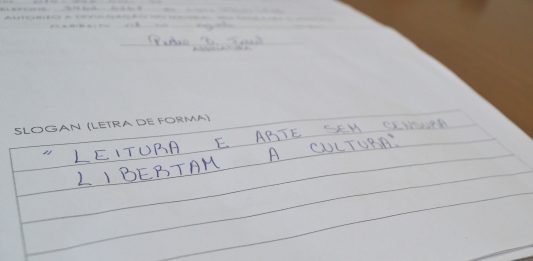 AUTORIZO A
ASSINATURA
SLOGAN (LETRA DE FORMA)
" LEITURA E ARTE SEM CENSURA
LIBERTAM A CULTURA."